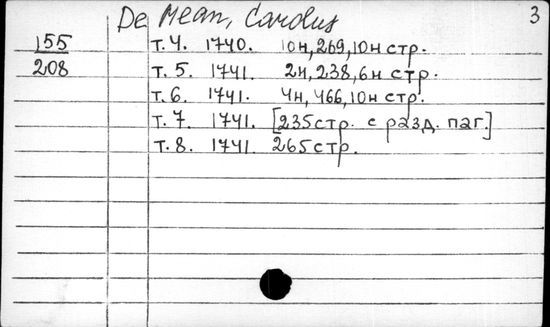 De Mean, Carolus 3
155 т. 4. 1740. 10н, 269, 10н стр.
208 т. 5. 1741. 2н, 238, 6н стр.
т. 6. 1741. 4н, 466, 10н стр.
т. 7. 1741. [235стр. с разд. паг.]
т. 8. 1741. 265стр.